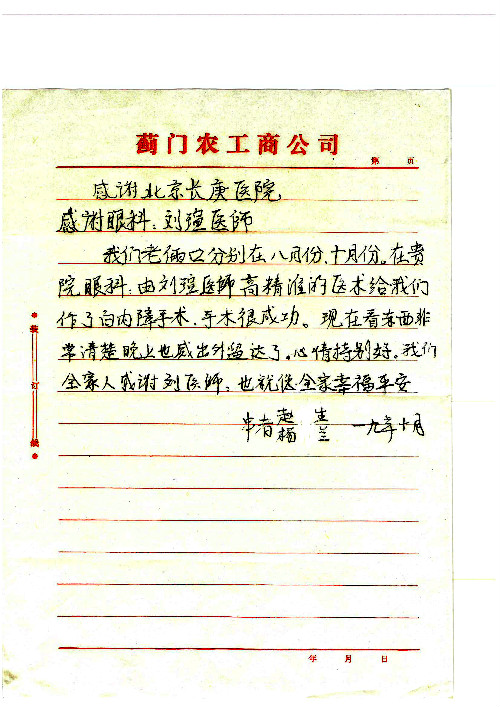 蓟门农工商公司
第 页
感谢北京长庚医院
感谢眼科:刘瑄医师
我们老俩口分别在八月份、十月份。在贵
院眼科:由刘瑄医师高精准的医术给我们
作了白内障手术、手术很成功。现在看东西非
常清楚晚上也敢出外留达了。心情特别好。我们
全家人感谢刘医师,也祝您全家幸福平安
患者 赵 生
杨 兰 一九年十月
装
订
线
年 月 日